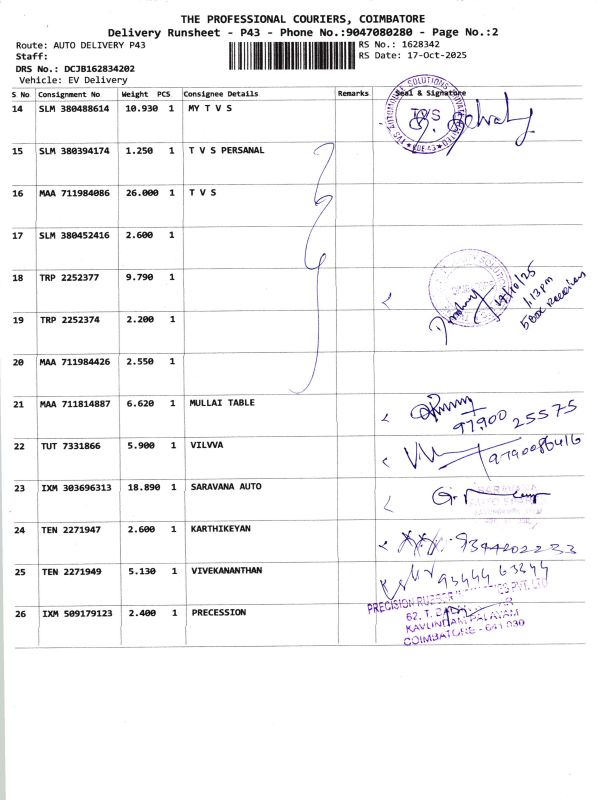 THE PROFESSIONAL COURIERS, COIMBATORE
Delivery Runsheet - P43 - Phone No.:9047080280 - Page No.:2
Route: AUTO DELIVERY P43 RS No.: 1628342
Staff: RS Date: 17-Oct-2025
DRS No.: DCJB162834202
Vehicle: EV Delivery
S No Consignment No Weight PCS Consignee Details Remarks Seal & Signature
14 SLM 380488614 10.930 1 MY T V S
TVS
15 SLM 380394174 1.250 1 T V S PERSANAL
16 MAA 711984086 26.000 1 T V S
17 SLM 380452416 2.600 1
18 TRP 2252377 9.790 1
17/10/25
1.13pm
5 Box Received
19 TRP 2252374 2.200 1
20 MAA 711984426 2.550 1
21 MAA 711814887 6.620 1 MULLAI TABLE
97900 25575
22 TUT 7331866 5.900 1 VILVVA
9790086416
23 IXM 303696313 18.890 1 SARAVANA AUTO
24 TEN 2271947 2.600 1 KARTHIKEYAN
9344202233
25 TEN 2271949 5.130 1 VIVEKANANTHAN
93444 63344
26 IXM 509179123 2.400 1 PRECESSION
PRECISION RUBBER PVT. LTD
62, T.
KAVUNDAMPALAYAM
COIMBATORE - 641 030